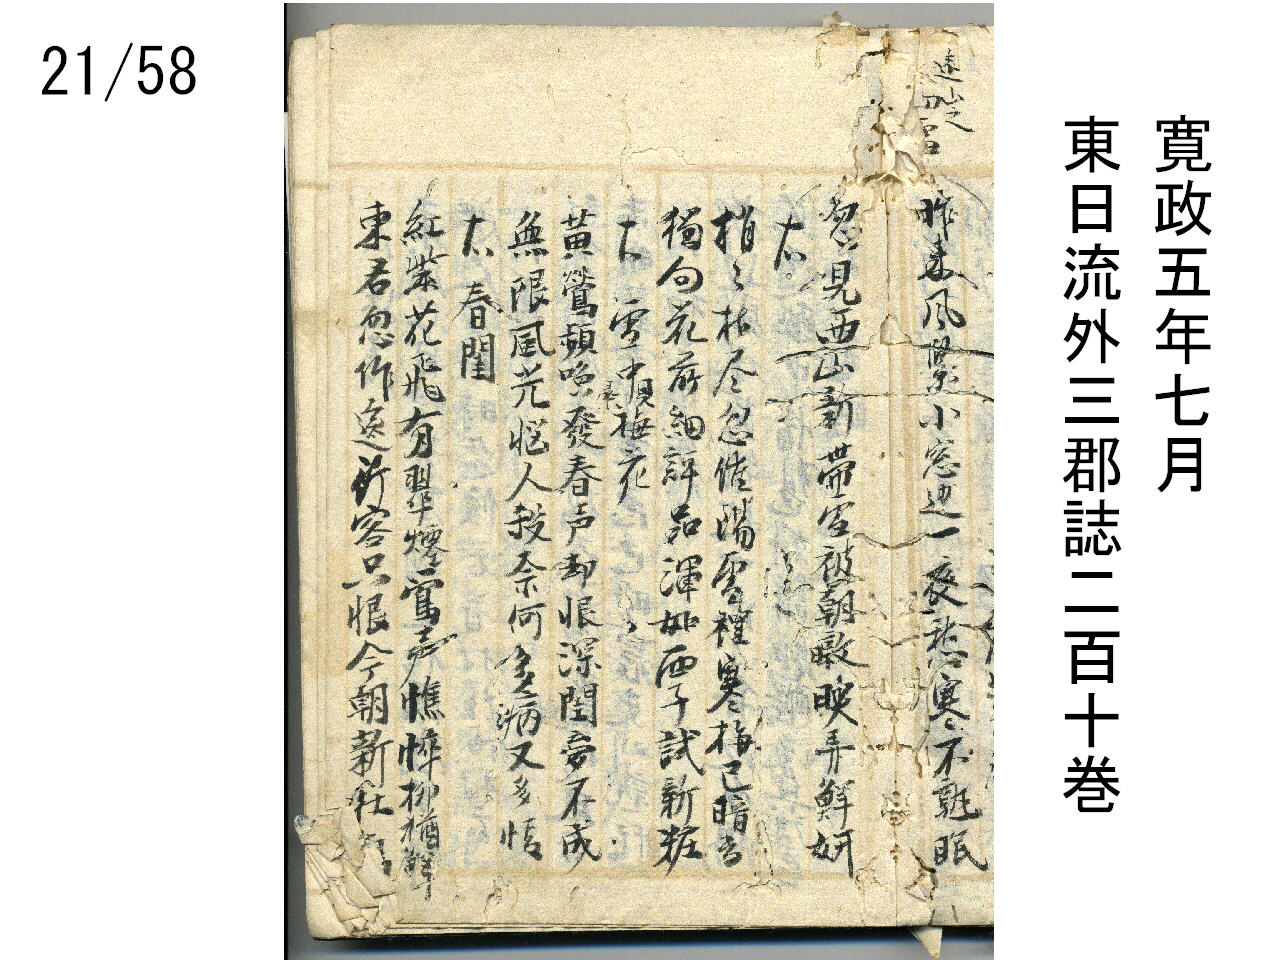 21/58
寛政五年七月
東日流外三郡誌二百十巻
遠山之
昨来風景小窓辺一夜愁寒不就眠
忽見西山新帯雪被朝暾映弄鮮妍
梢々枯尽忽催陽雪裡寒梅已暗香
獨向花前細評品渾如西子試新粧
雪中梅花
黄鶯頻喚發春声却恨深閨夢不成
無限風光悩人殺奈何多病又多情
春閨
紅紫花飛有翠煙鶯声憔悴柳梢
東君忽作遠行客只恨今朝新